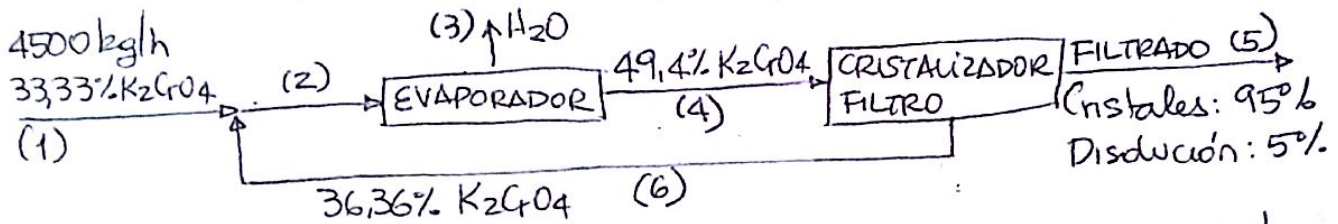 4500 kg/h
33,33% K2CrO4
(1)
(2)
(3) H2O
EVAPORADOR
49,4% K2CrO4
(4)
CRISTALIZADOR
FILTRO
FILTRADO (5)
Cristales: 95%
Disolución: 5%.
36,36% K2CrO4 (6)